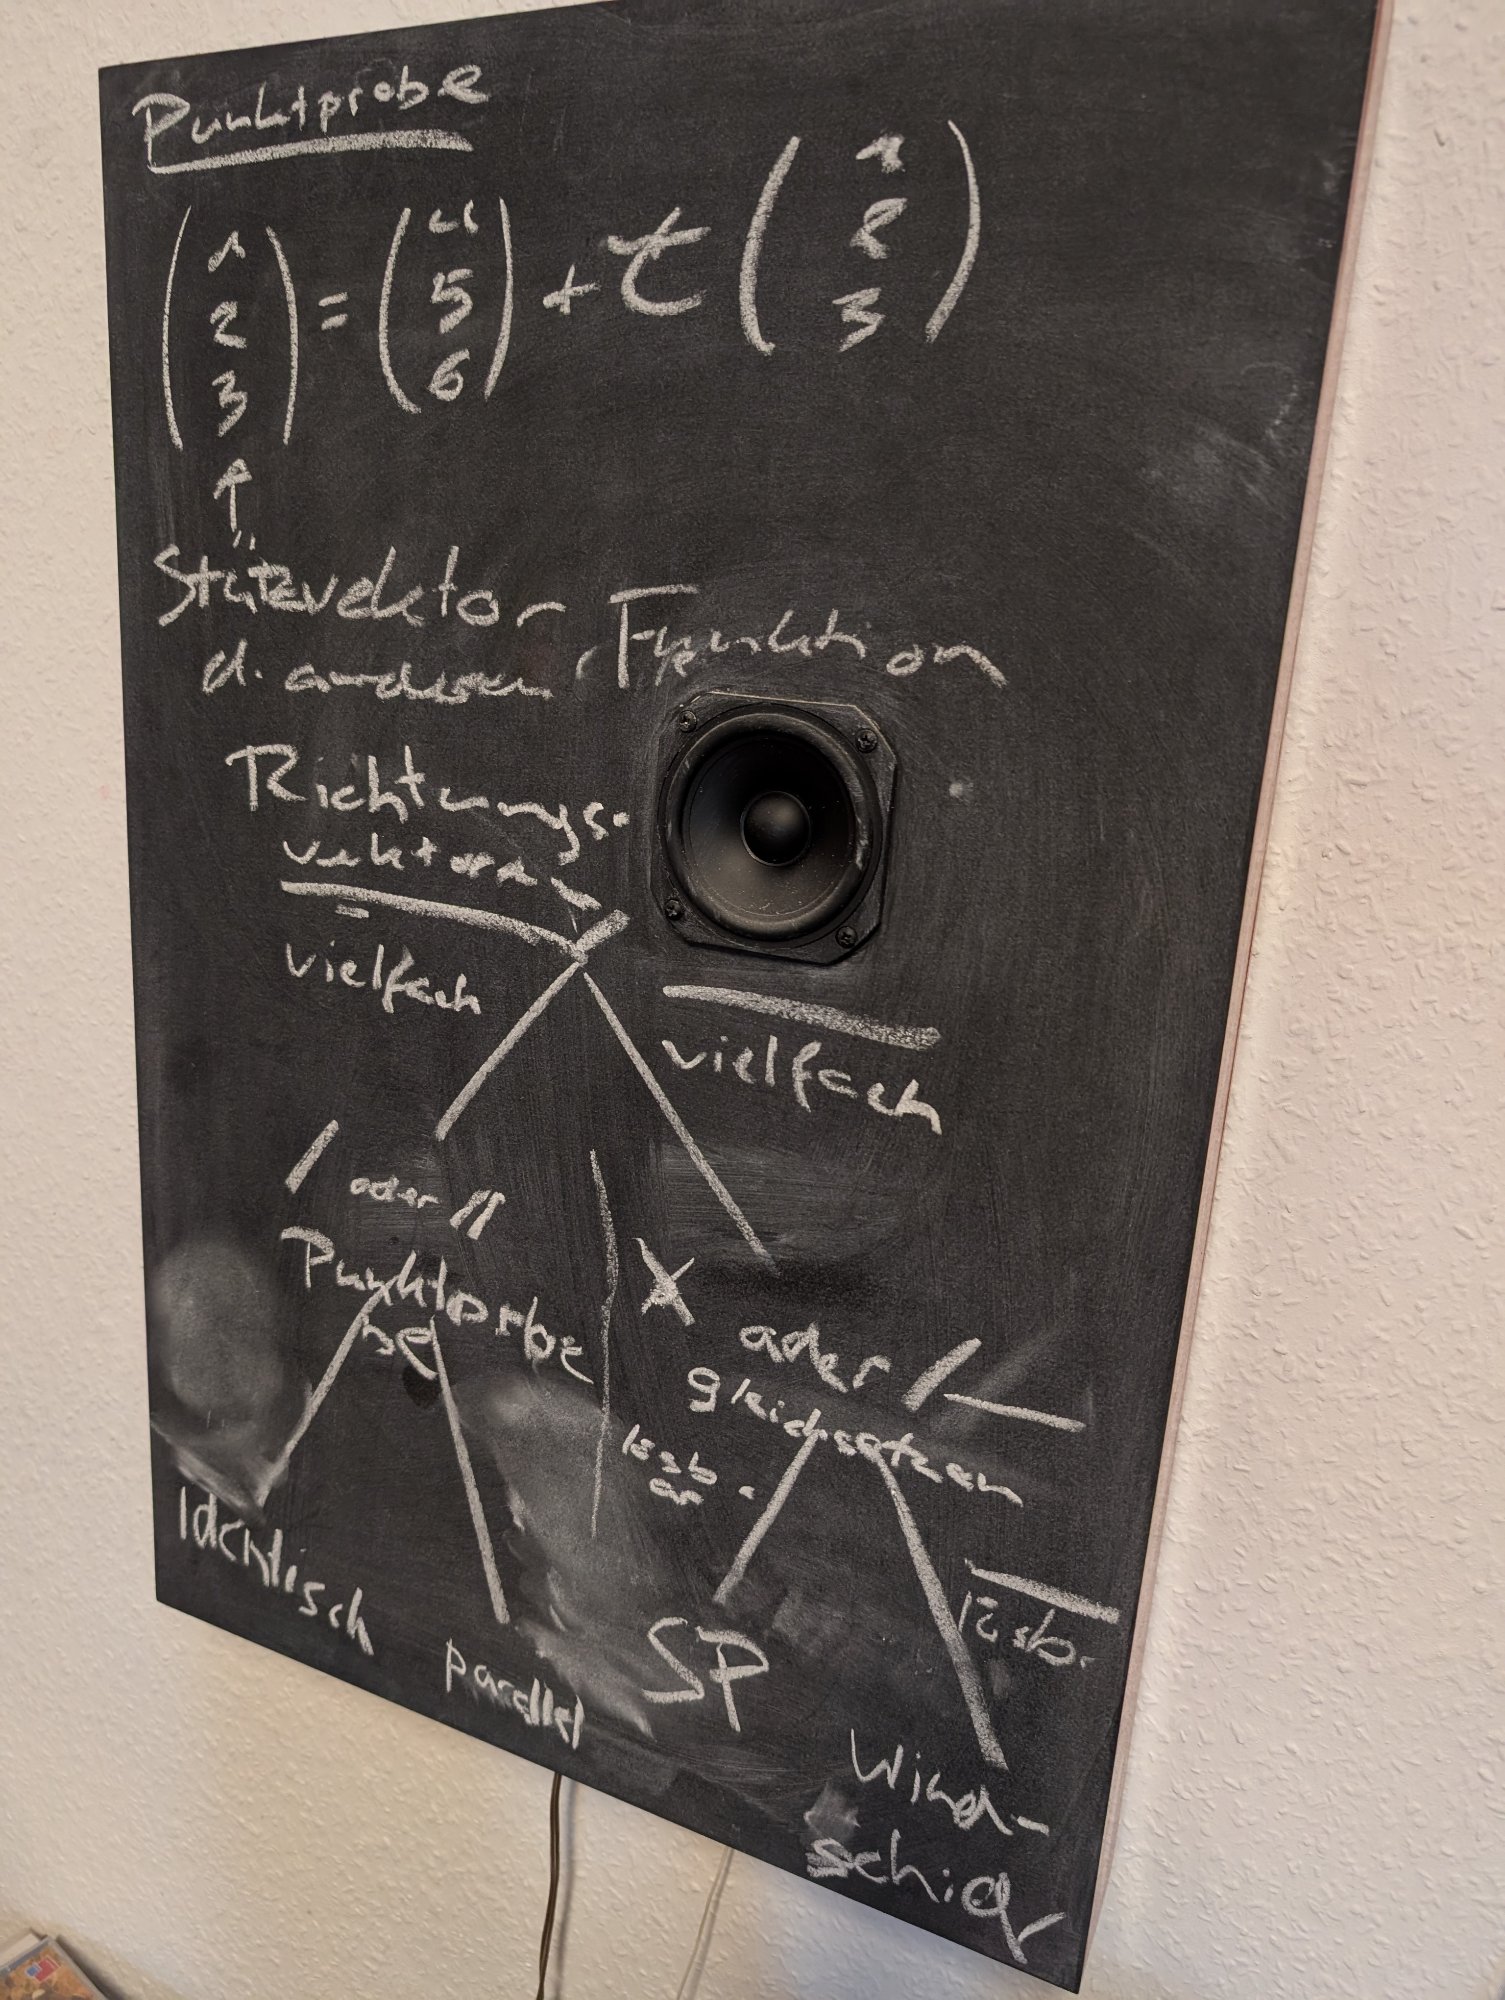 Punktprobe
(1 2 3) = (4 5 6) + t (1 2 3)
Stützvektor
d. anderen Funktion
Richtungs-
vektoren
vielfach
vielfach
/ oder //
Punktprobe
X oder /—
gleichsetzen
lösb
ar
lösb.
Identisch
parallel
SP
Wind-
schief